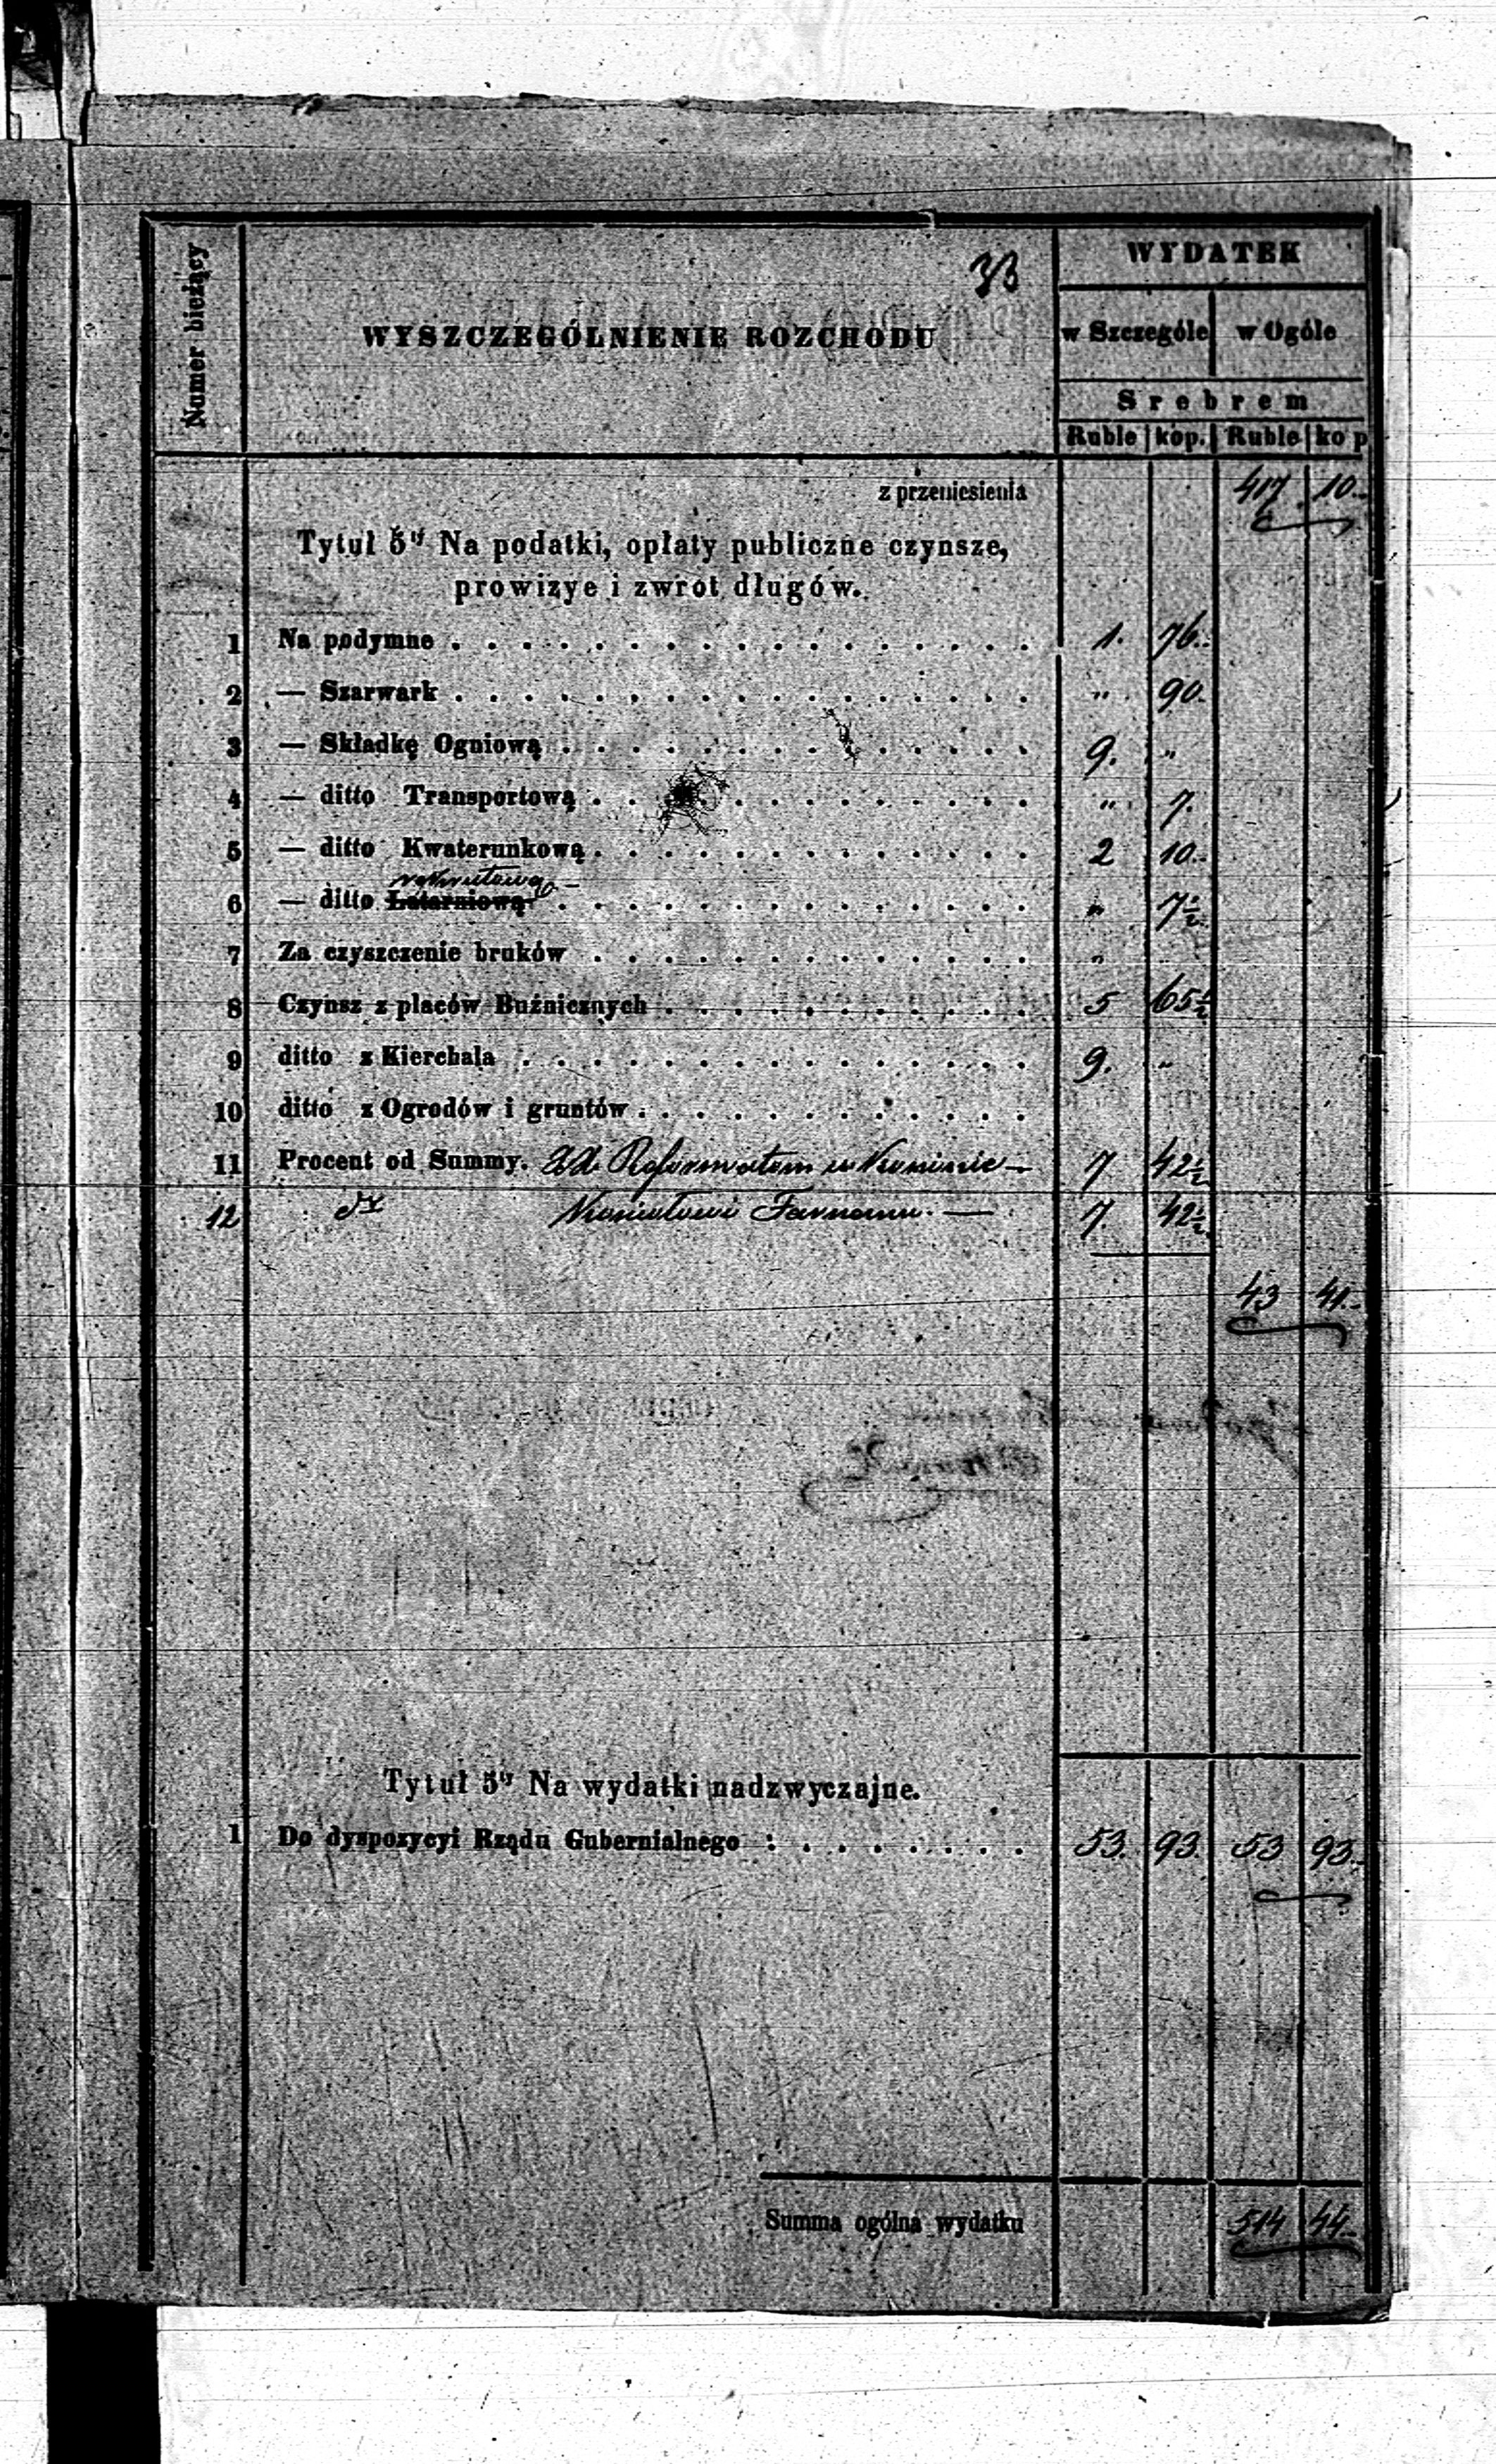 33
Numer bieżący
WYSZCZEGÓLNIENIE ROZCHODU
WYDATEK
w Szczególe w Ogóle
Srebrem
Ruble kop. Ruble kop
z przeniesienia 417 10
Tytuł 5ty Na podatki, opłaty publiczne czynsze,
prowizye i zwrot długów.
1 Na podymne . . . . . 1. 76.
2 — Szarwark . . . . . „ 90.
3 — Składkę Ogniową . . . . . 9. „
4 — ditto Transportową . . . . . „ 7.
5 — ditto Kwaterunkową . . . . . 2 10.
rekrutową
6 — ditto Latarniową . . . . . „ 7½
7 Za czyszczenie bruków . . . . . „
8 Czynsz z placów Buźnicznych . . . . . 5 65½
9 ditto z Kierchala . . . . . 9. „
10 ditto z Ogrodów i gruntów . . . . .
11 Procent od Summy. XX Reformatom w — 7 42½
12 Kościołowi Farnemu. — 7 42½
43 41.
Tytuł 5ty Na wydatki nadzwyczajne.
1 Do dyspozycyi Rządu Gubernialnego . . . . . 53. 93. 53 93.
Summa ogólna wydatku 514 44.